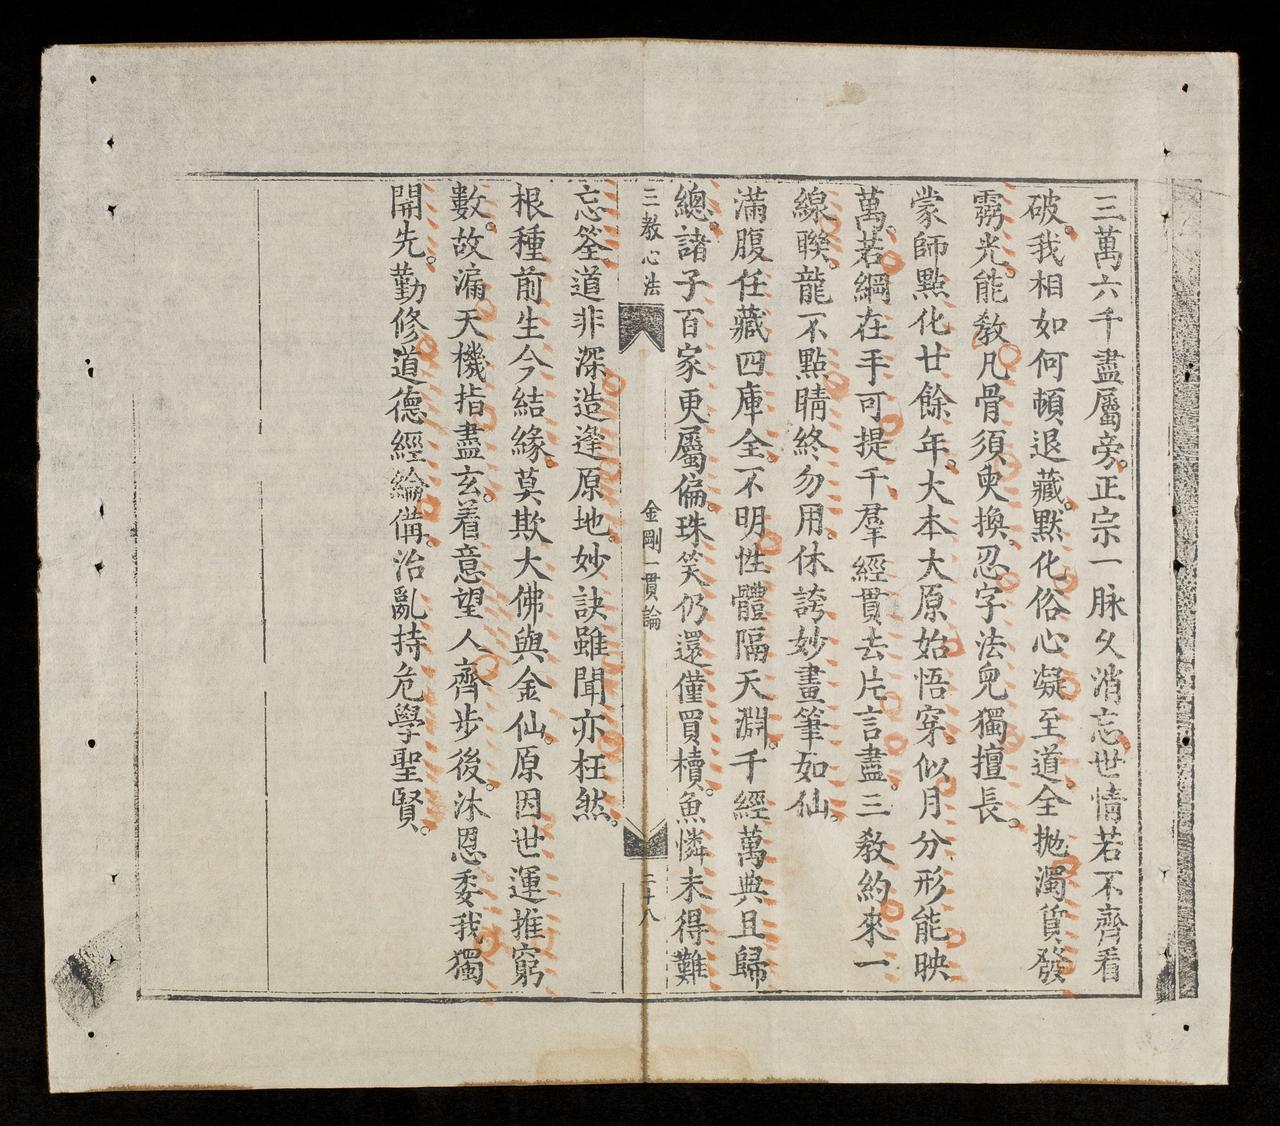 三萬六千盡屬旁。正宗一脉久消忘世情若不齊看
破。我相如何頓退藏。默化俗心凝至道。全抛濁質發
霧光。能教凡骨須臾換。忍字法兒獨擅長。
蒙師點化廿餘年。大本大原始悟穿。似月分形能映
萬。若綱在手可提千。羣經貫去片言盡。三教約來一
線聮。龍不點睛終勿用。休誇妙畫筆如仙。
滿腹任藏四庫全。不明性體隔天淵。千經萬典且歸
總。諸子百家更屬偏。珠笑仍還僅買櫝。魚憐未得難
三教心法
金剛一貫論
二十八
忘筌。道非深造逢原地。妙訣雖聞亦枉然。
根種前生今結緣。莫欺大佛與金仙。原因世運推窮
數。故漏天機指盡玄。着意望人齊步後。沐恩委我獨
開先。勤修道德經綸備。治亂持危學聖賢。